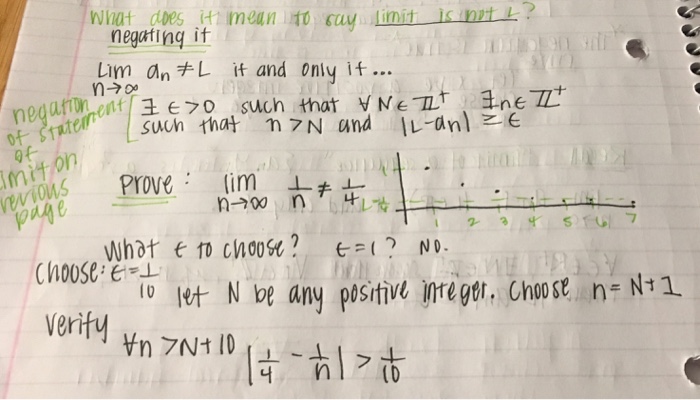 What does it mean to say limit is not L?
negating it
Lim an ≠ L if and only if...
n→∞
negation of statement of limit on previous page
∃ ε>0 such that ∀ N∈ℤ⁺ ∃n∈ℤ⁺
such that n>N and |L-an| ≥ ε
Prove: lim 1/n ≠ 1/4
n→∞
1 2 3 4 5 6 7
What ε to choose? ε=1? NO.
Choose: ε=1/10
let N be any positive integer. Choose n=N+1
Verify
∀n>N+10 |1/4 - 1/n| > 1/10